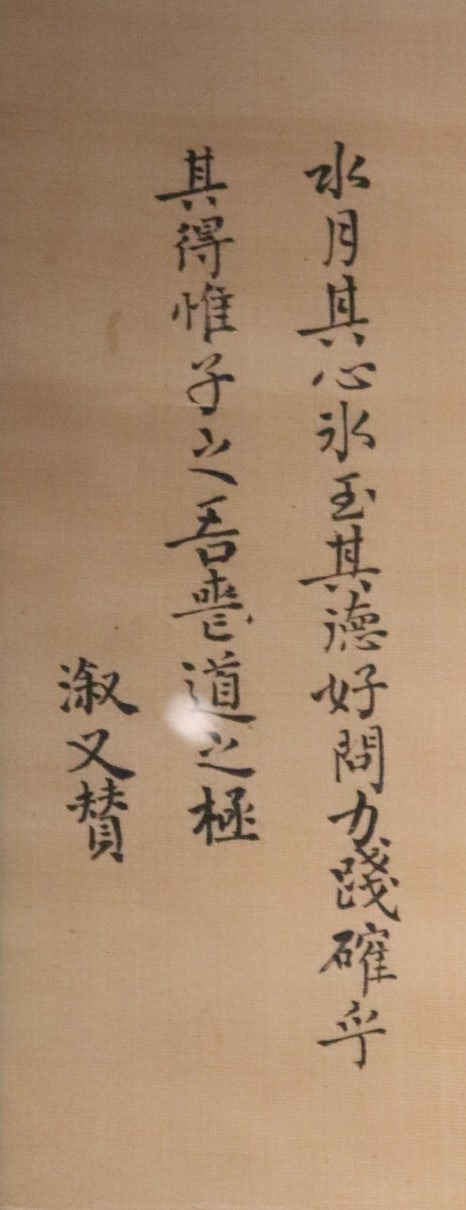 水月其心氷玉其德好問力踐確乎
其得惟子之吾喪道之極
溆又贊